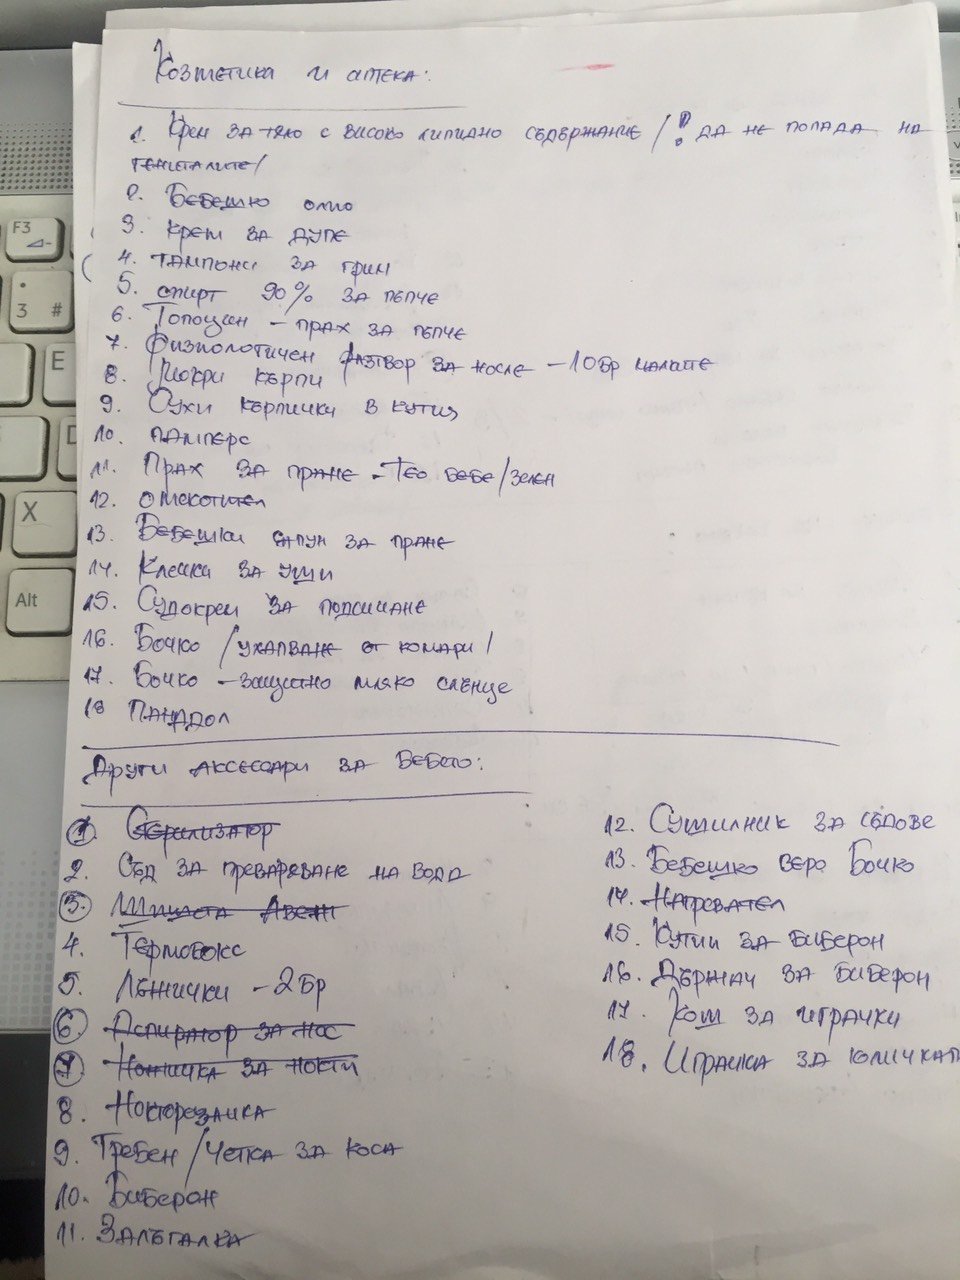 Козметика и аптека:
1. Крем за тяло с високо липидно съдържание /! да не попада на
гениталите/
2. Бебешко олио
3. Крем за дупе
4. Тампони за грим
5. спирт 90% за пъпче
6. Топоцин - прах за пъпче
7. Физиологичен разтвор за носле - 10бр малките
8. Мокри кърпи
9. Сухи кърпички в кутия
10. памперс
11. Прах за пране - Тео бебе/зелен
12. омекотител
13. Бебешки сапун за пране
14. Клечки за уши
15. Судокрем за подсичане
16. Бочко /ухапване от комари/
17. Бочко - защитно мляко слънце
18 Панадол
Други аксесоари за бебето:
1. Стерилизатор
2. Съд за преваряване на вода
3. Шишета Авент
4. Термобокс
5. Лъжички - 2бр
6. Аспиратор за нос
7. Ножичка за нокти
8. Нокторезачка
9. Гребен / четка за коса
10. Биберон
11. Залъгалка
12. Сушилник за съдове
13. Бебешко веро Бочко
14. Нагревател
15. Кутии за биберон
16. Държач за биберон
17. Кош за играчки
18. Играчка за количкат
F3
3 #
E
D
X
Alt